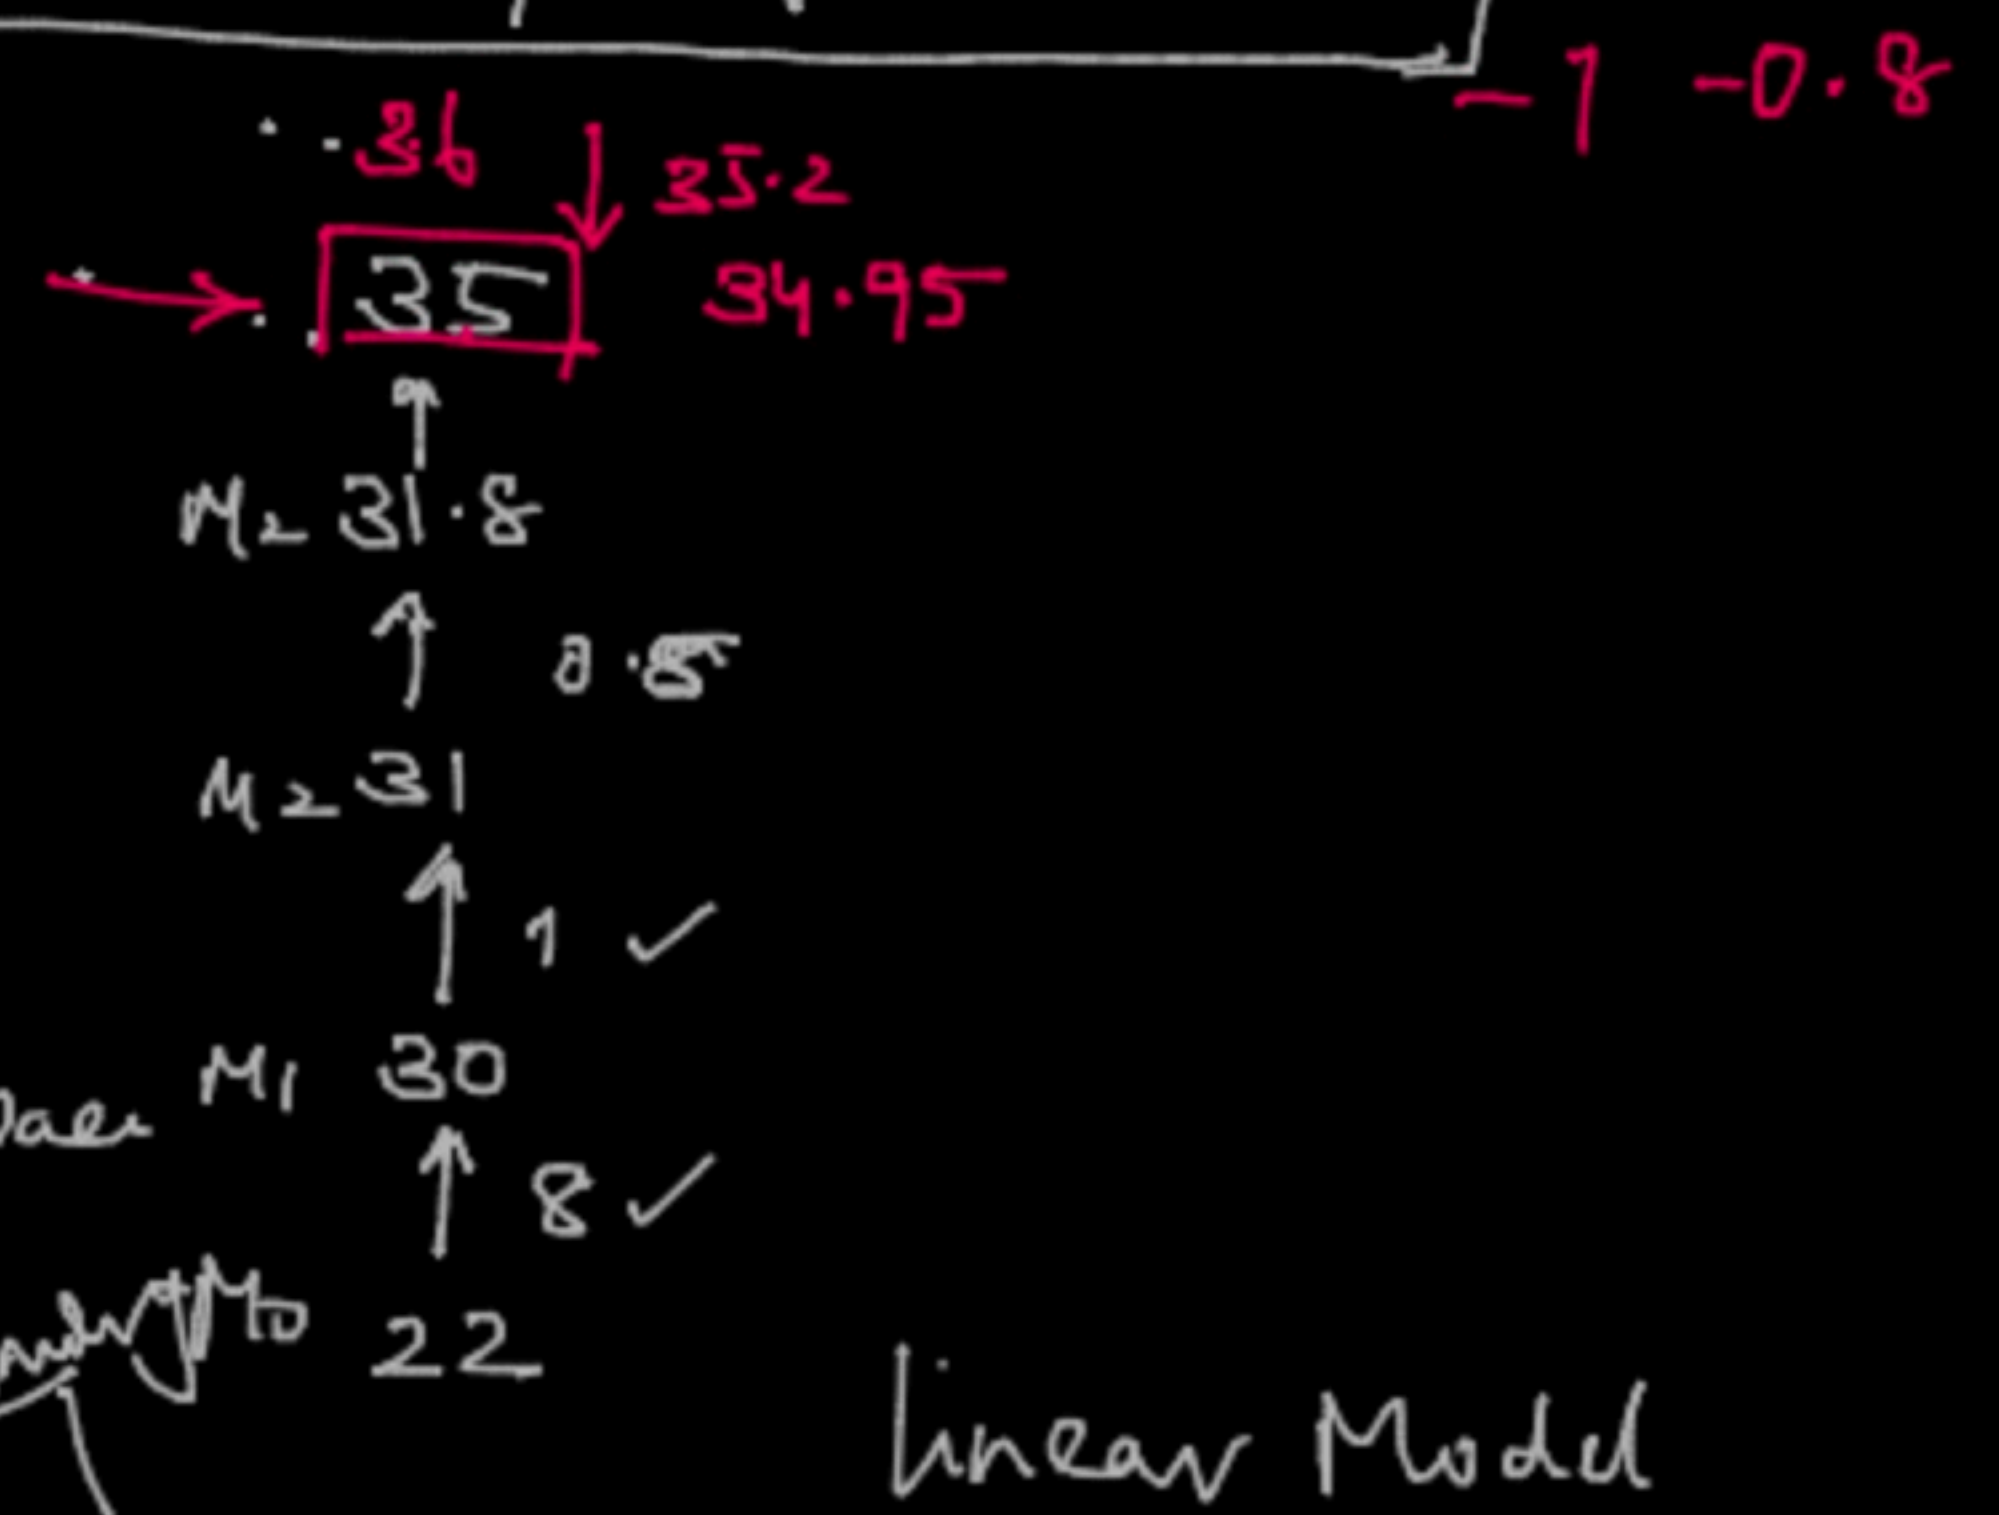 -1 -0.8
36
35.2
35
34.95
M2 31.8
M2 31
1 ✓
M1 30
8 ✓
M0 22
linear Model